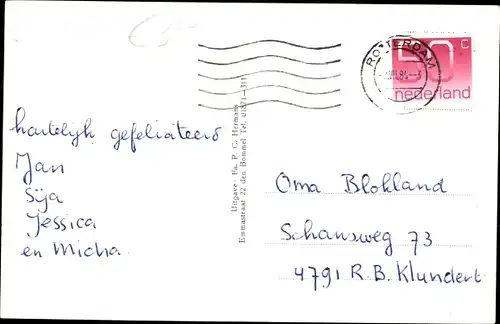 hartelijk gefeliciteerd
Jan
Sija
Jessica
en Micha.
Uitgave: Fa. P. C. Hermans
Emmastraat 22 den Bommel Tel. 01871-311
ROTTERDAM
84
50 c
nederland
Oma Blokland
Schansweg 73
4791 R.B. Klundert